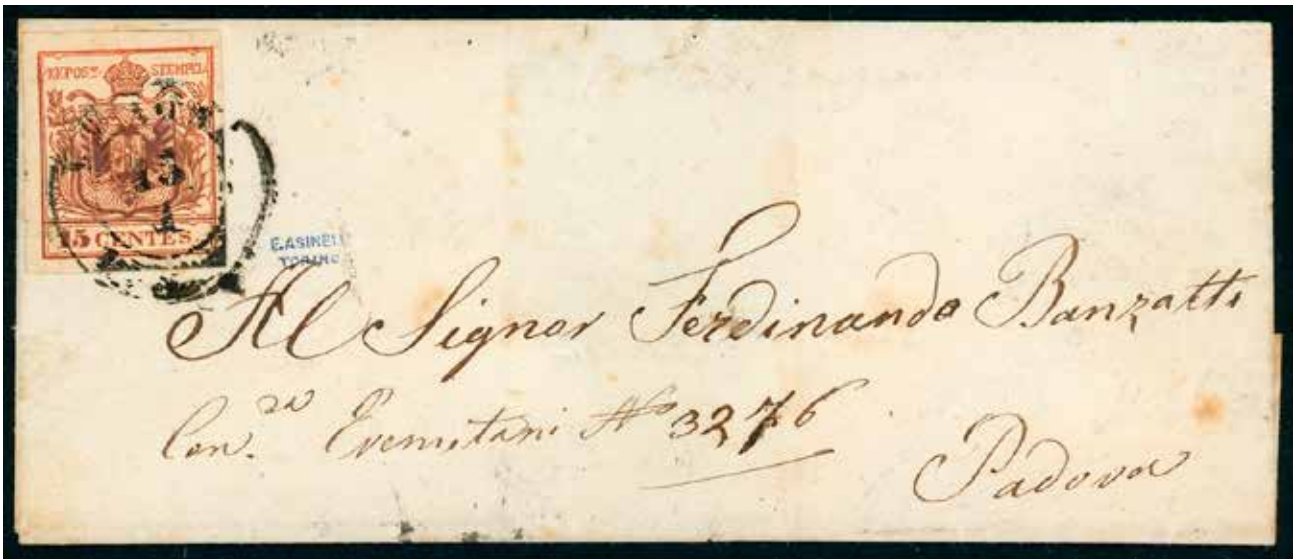 KKPOST- STEMPEL
13
1
15 CENTES
E.ASINELLI
TORINO
Al Signor Ferdinando Banzatti
Con.ra Eremitani No 3276
Padova